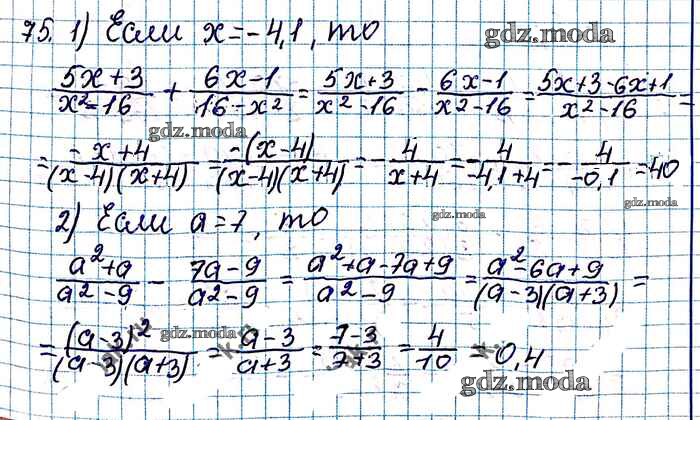 75. 1) Если x = -4,1, то
gdz.moda
(5x+3)/(x²-16) + (6x-1)/(16-x²) = (5x+3)/(x²-16) - (6x-1)/(x²-16) = (5x+3-6x+1)/(x²-16) =
gdz.moda
gdz.moda
= (-x+4)/((x-4)(x+4)) = (-(x-4))/((x-4)(x+4)) = -4/(x+4) = -4/(-4,1+4) = -4/(-0,1) = 40
gdz.moda
2) Если a = 7, то
gdz.moda
(a²+a)/(a²-9) - (7a-9)/(a²-9) = (a²+a-7a+9)/(a²-9) = (a²-6a+9)/((a-3)(a+3)) =
= (a-3)²/((a-3)(a+3)) = (a-3)/(a+3) = (7-3)/(7+3) = 4/10 = 0,4
gdz.moda
gdz.moda